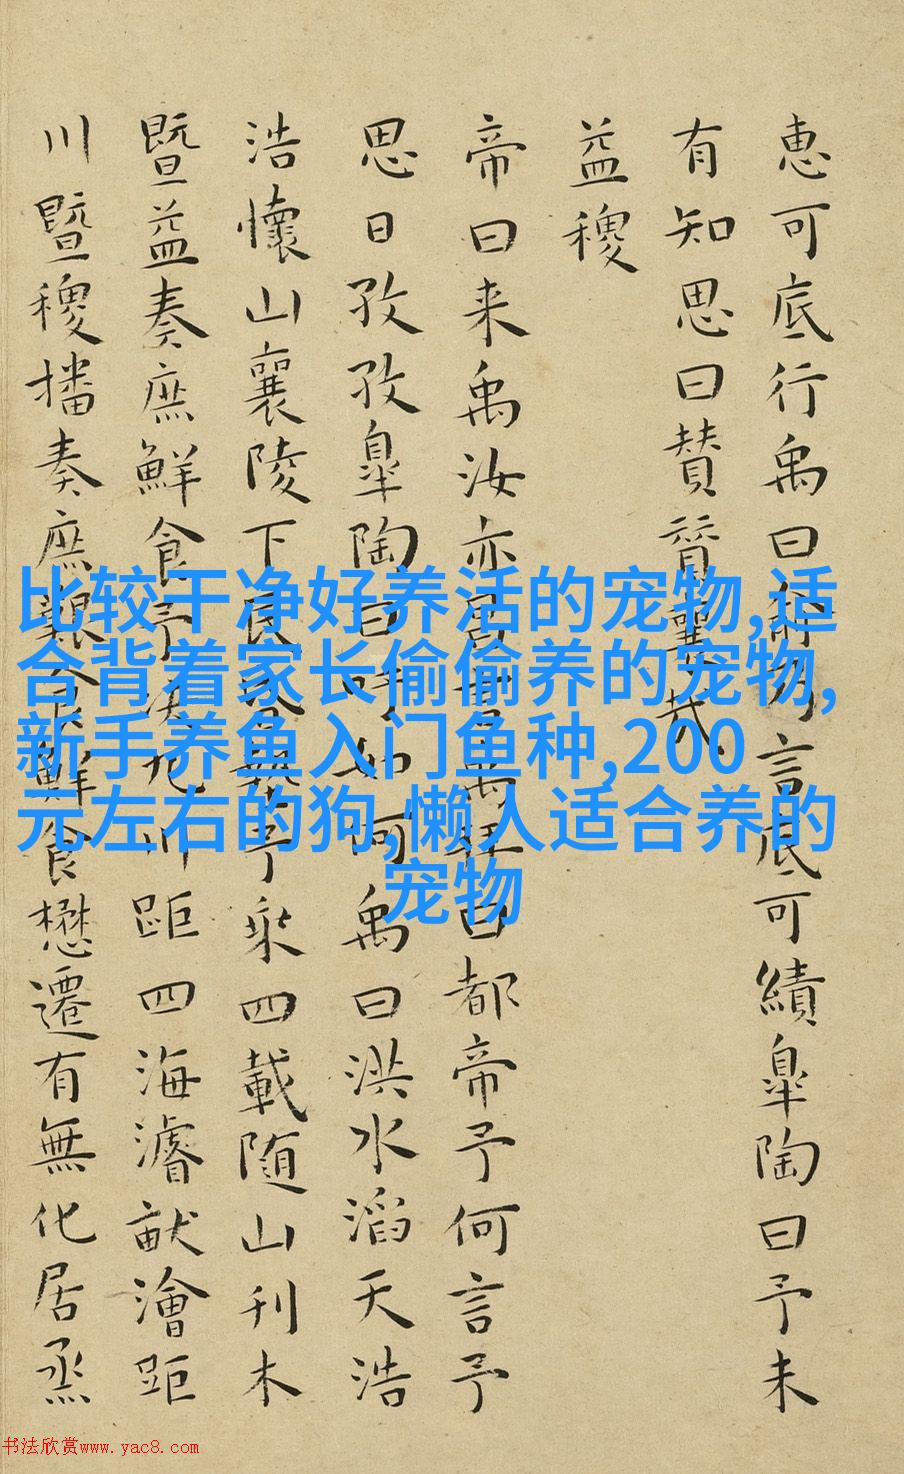 惠可底行禹曰俞乃言底可績皋陶曰予未
有知思曰賛賛襄哉
益稷
帝曰来禹汝亦昌言禹拜曰都帝予何言予
思日孜孜皋陶曰吁如何禹曰洪水滔天浩
浩懷山襄陵下民昏墊予乘四載随山刊木
暨益奏庶鮮食予决九川距四海濬畎澮距
川暨稷播奏庶艱食鮮食懋遷有無化居烝
比较干净好养活的宠物,适
合背着家长偷偷养的宠物,
新手养鱼入门鱼种,200
元左右的狗,懒人适合养的
宠物
书法欣赏www.yac8.com